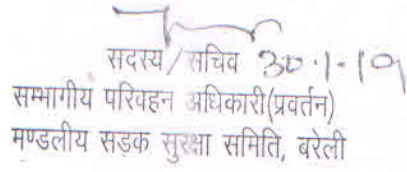 सदस्य/सचिव 30.1.19
सम्भागीय परिवहन अधिकारी(प्रवर्तन)
मण्डलीय सड़क सुरक्षा समिति, बरेली